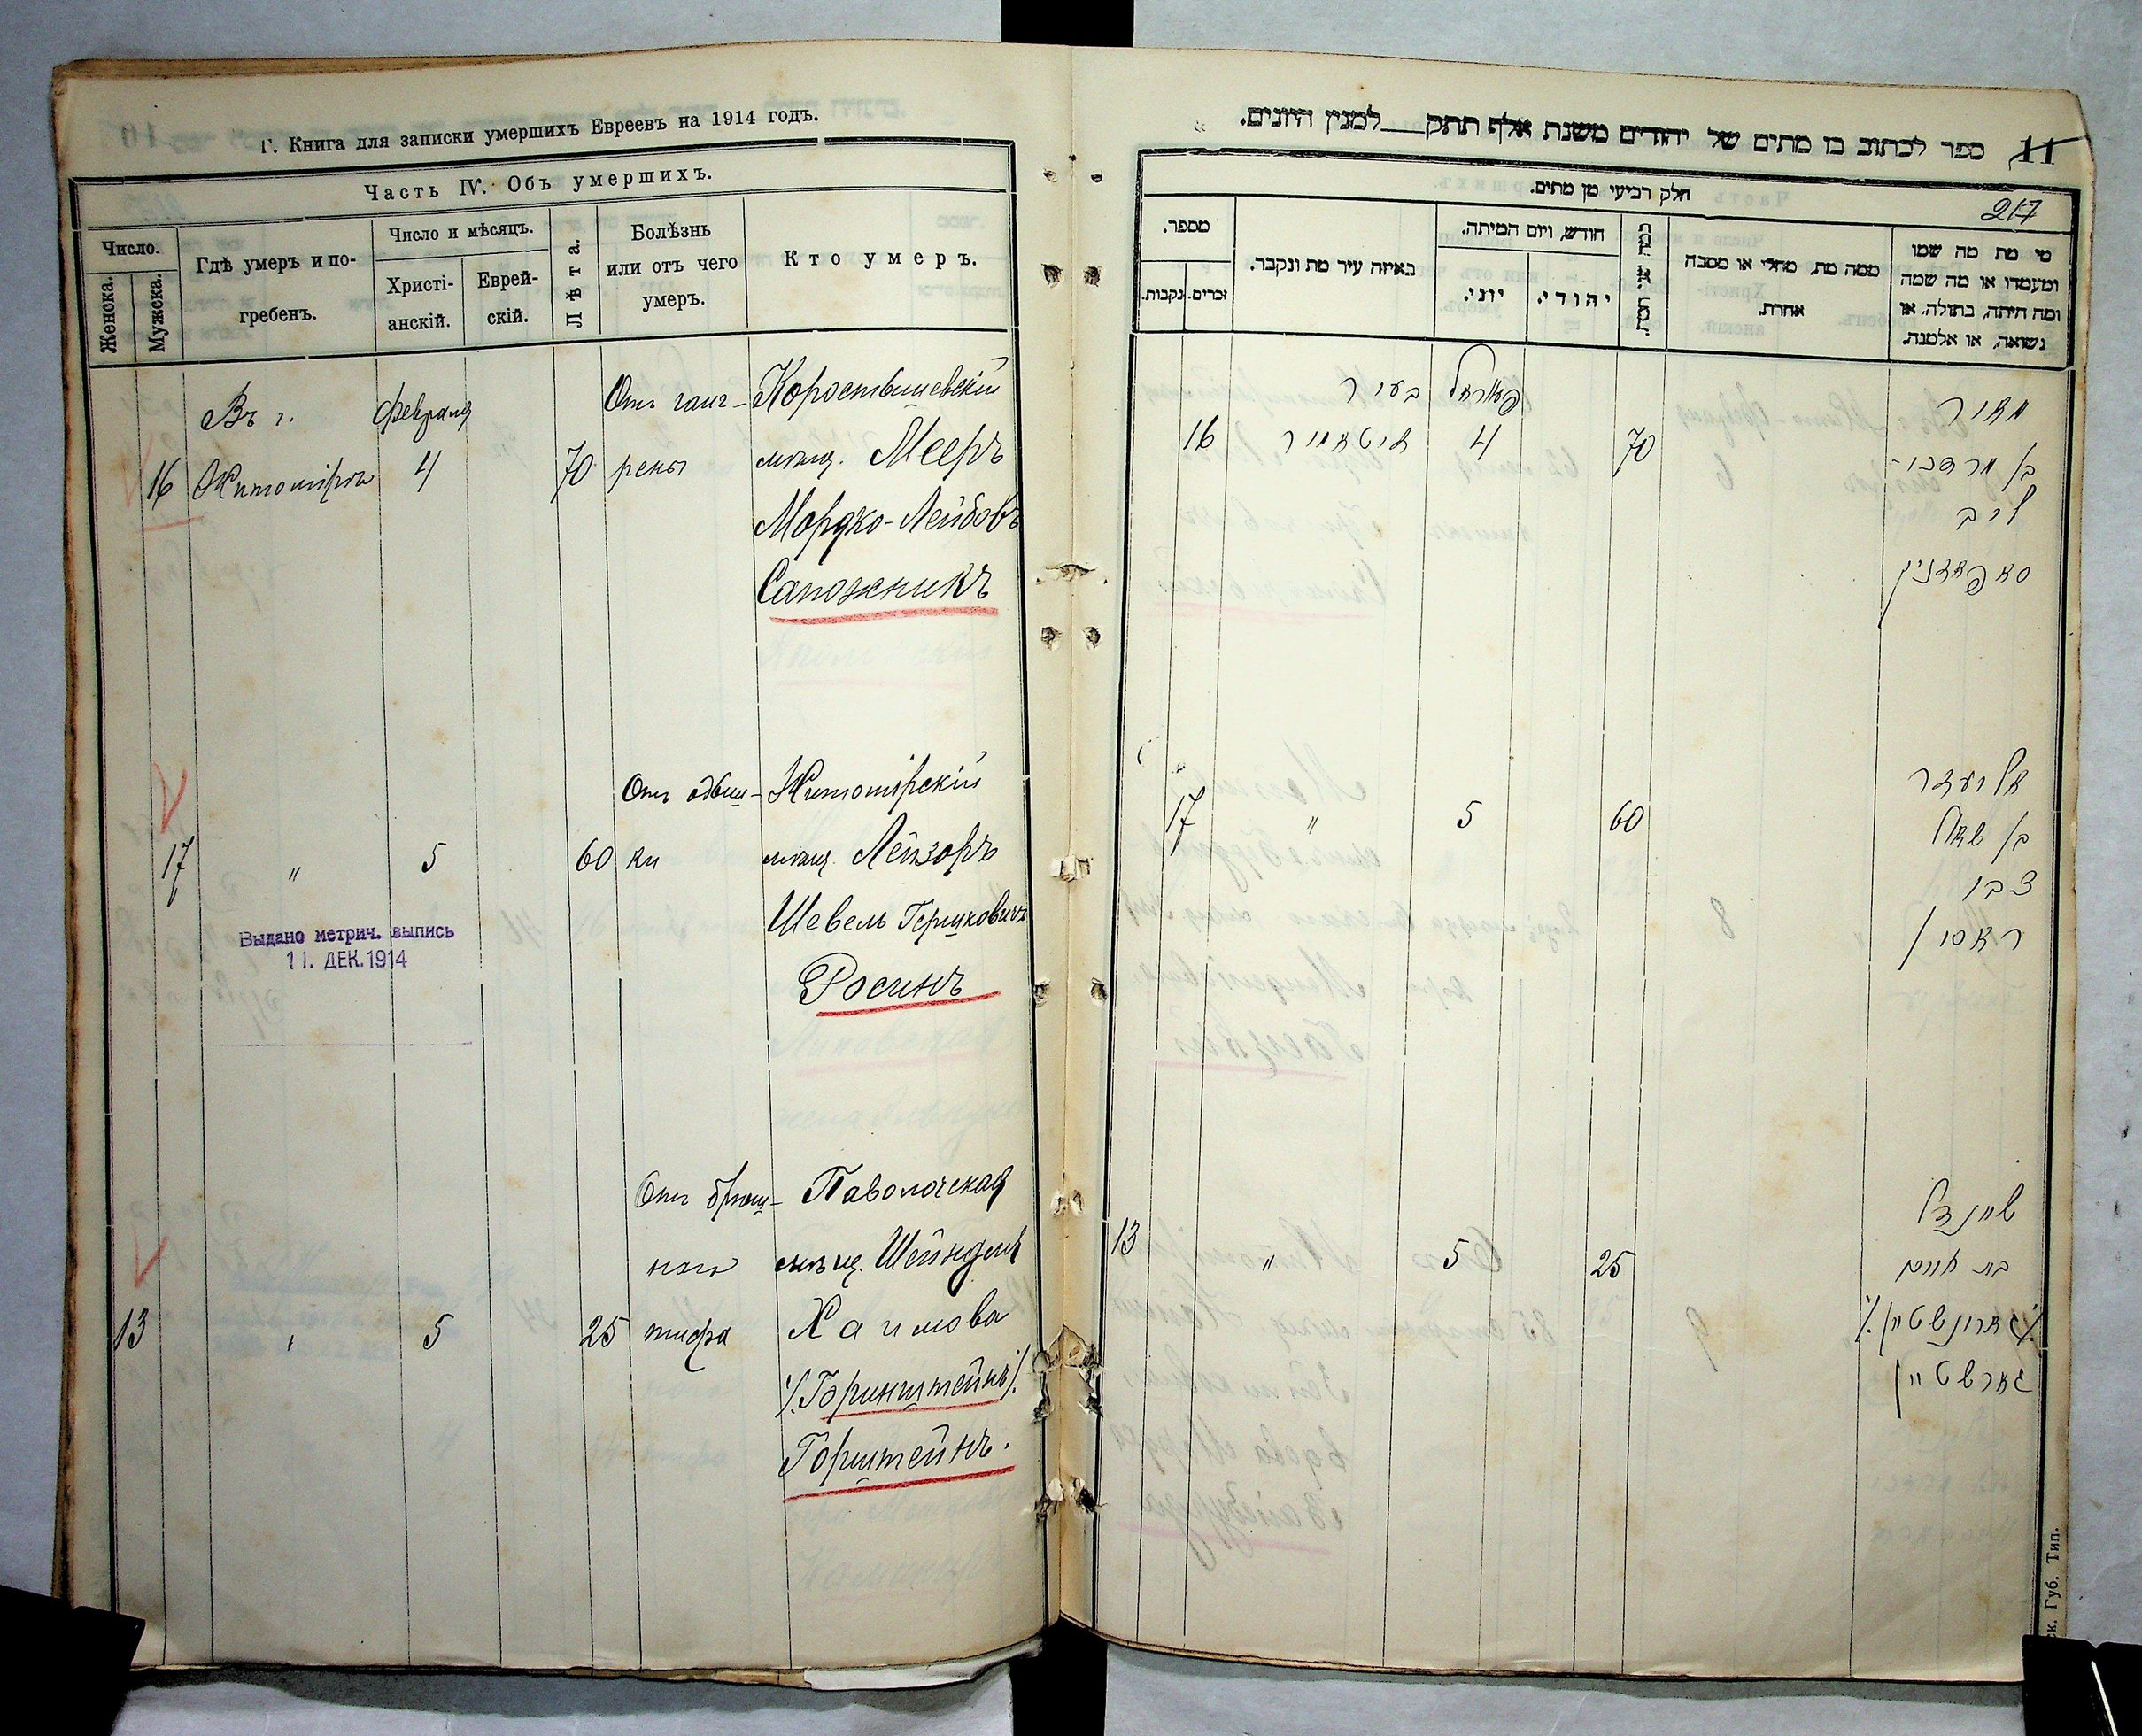 Г. Книга для записки умершихъ Евреевъ на 1914 годъ.
Часть IV. Объ умершихъ.
Число.
Женска.
Мужска.
Гдѣ умеръ и по-
гребенъ.
Число и мѣсяцъ.
Христі-
анскій.
Еврей-
скій.
Лѣта.
Болѣзнь
или отъ чего
умеръ.
Кто умеръ.
Въ г. февраля Отъ ганг- Коростышевскій
16 Житомірѣ 4 70 рены мѣщ. Мееръ
Мордко-Лейбовъ
Сапожникъ
Отъ одыш- Житомірскій
17 " 5 60 ки мѣщ. Лейзоръ
Шевель Гершковичъ
Выдано метрич. выпись
11. ДЕК. 1914
Росинъ
Отъ брюш- Паволочская
ного мѣщ. Шейндля
13 " 5 25 тифа Хаимова
/.Горинштейнъ/.
Горштейнъ.
ספר לכתוב בו מתים של יהודים משנת אלף תתק למנין היונים.
11
217
חלק רביעי מן מתים.
מספר.
נקבות.
זכרים.
באיזה עיר מת ונקבר.
חודש, ויום המיתה.
יוני.
יהודי.
ממה מת, מחלי או מסבה
אחרת.
מי מת מה שמו
ומעמדו או מה שמה
ומה היתה, בתולה, או
נשואה, או אלמנה.
בעיר
מאיר
16 זיטאמיר 4 70
בן מרדכי
ליב
סאפאזניק
אליעזר
17 " 5 60
בן שאול
צבי
ראסין
שיינדל
13 " 5 25
בת חיים
/.גארונשטיין/.
גארשטיין
ск. Губ. Тип.